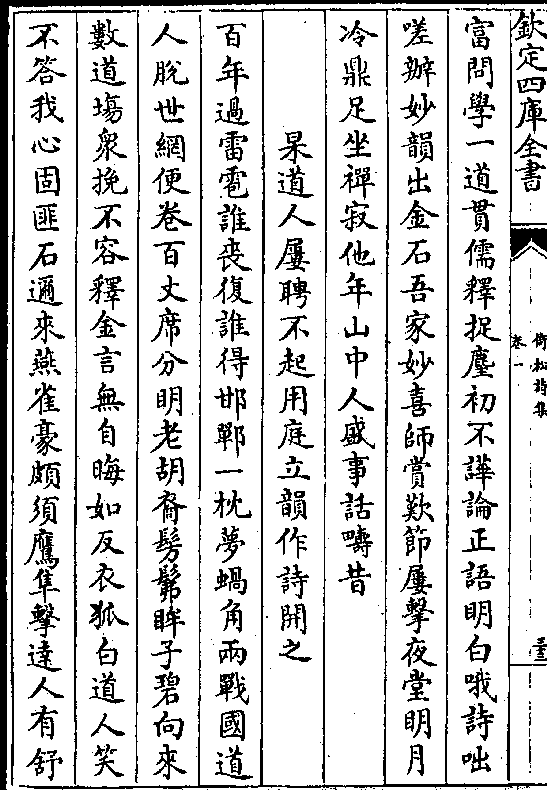 欽定四庫全書
倚松詩集
卷一
富問學一道貫儒釋捉麈初不譁論正語明白哦詩咄
嗟辦妙韻出金石吾家妙喜師賞歎節屢擊夜堂明月
冷鼎足坐禪寂他年山中人盛事話疇昔
杲道人屢聘不起用庭立韻作詩開之
百年過雷雹誰喪復誰得邯鄲一枕夢蝸角兩戰國道
人脫世網便卷百丈席分明老胡裔髣髴眸子碧向來
數道塲衆挽不容釋金言無自晦如反衣狐白道人笑
不答我心固匪石邇來燕雀豪頗須鷹隼擊達人有舒